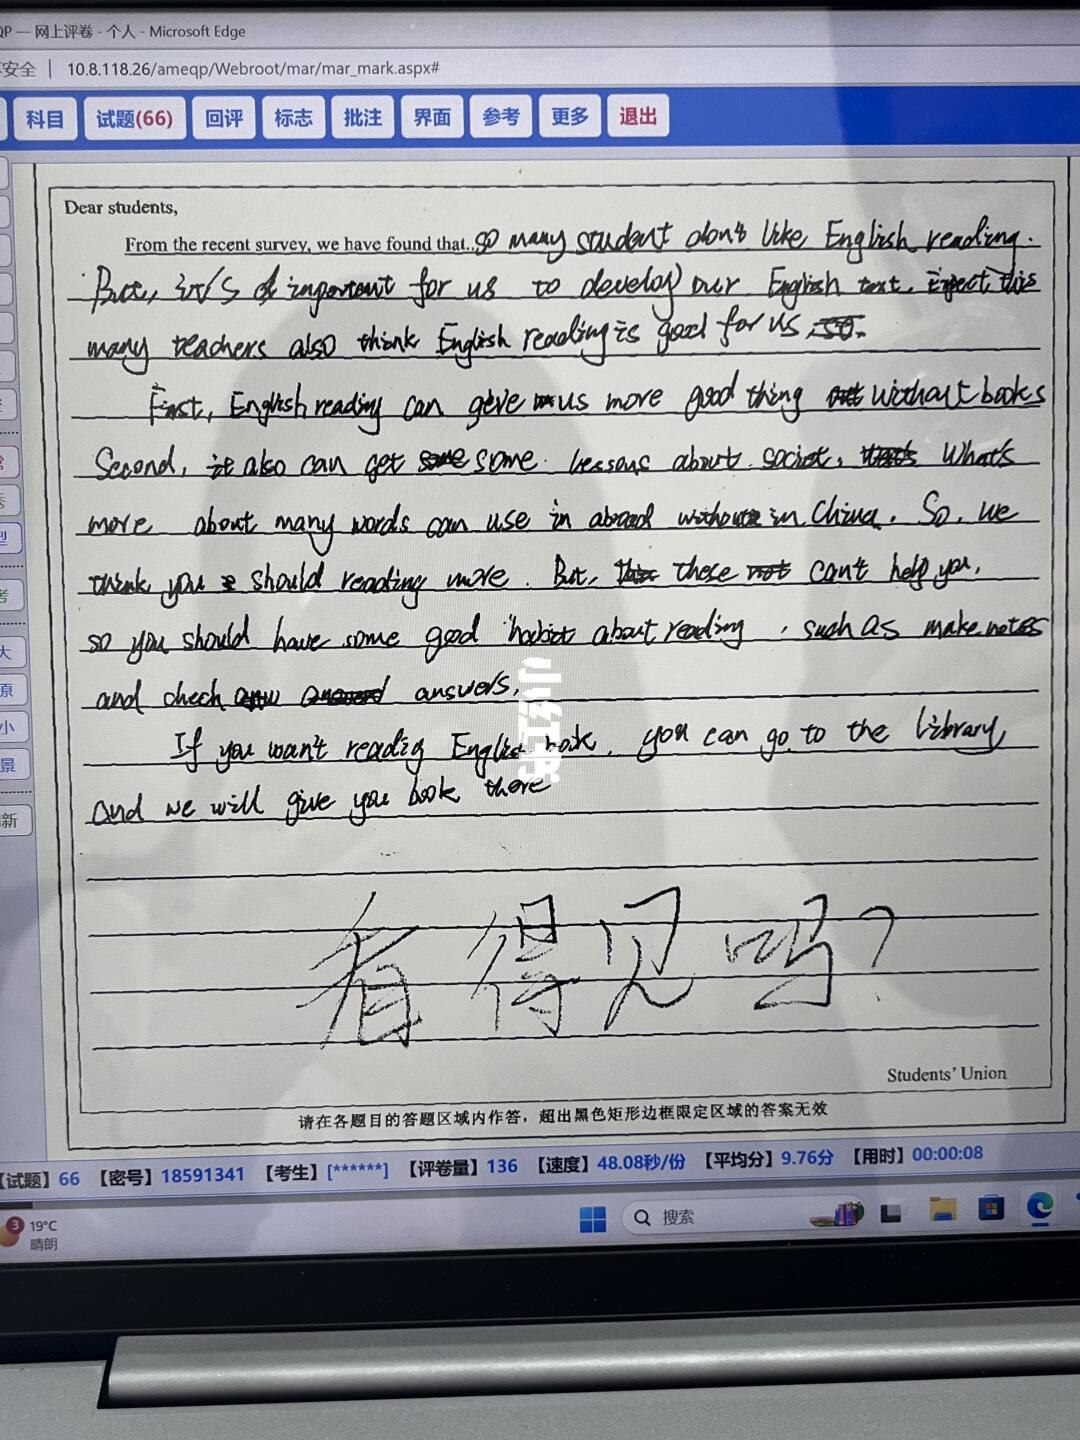 QP — 网上评卷 - 个人 - Microsoft Edge
不安全 | 10.8.118.26/ameqp/Webroot/mar/mar_mark.aspx#
科目 试题(66) 回评 标志 批注 界面 参考 更多 退出
Dear students,
From the recent survey, we have found that so many student don't like English reading.
But, it's important for us to develop our English text.
many teachers also think English reading is good for us.
First, English reading can geive us more good thing without books
Second, it also can get some lessons about sociot, What's
more about many words can use in abroad without in China. So, we
think you should reading more. But, these can't help you,
so you should have some good habit about reading, such as make notes
and check answers.
If you wan't readig English book, you can go to the library,
and we will give you book there
看得见吗?
Students' Union
请在各题目的答题区域内作答，超出黑色矩形边框限定区域的答案无效
【试题】66 【密号】18591341 【考生】[******] 【评卷量】136 【速度】48.08秒/份 【平均分】9.76分 【用时】00:00:08
3 19°C
晴朗
搜索
大
原
小
景
小红书